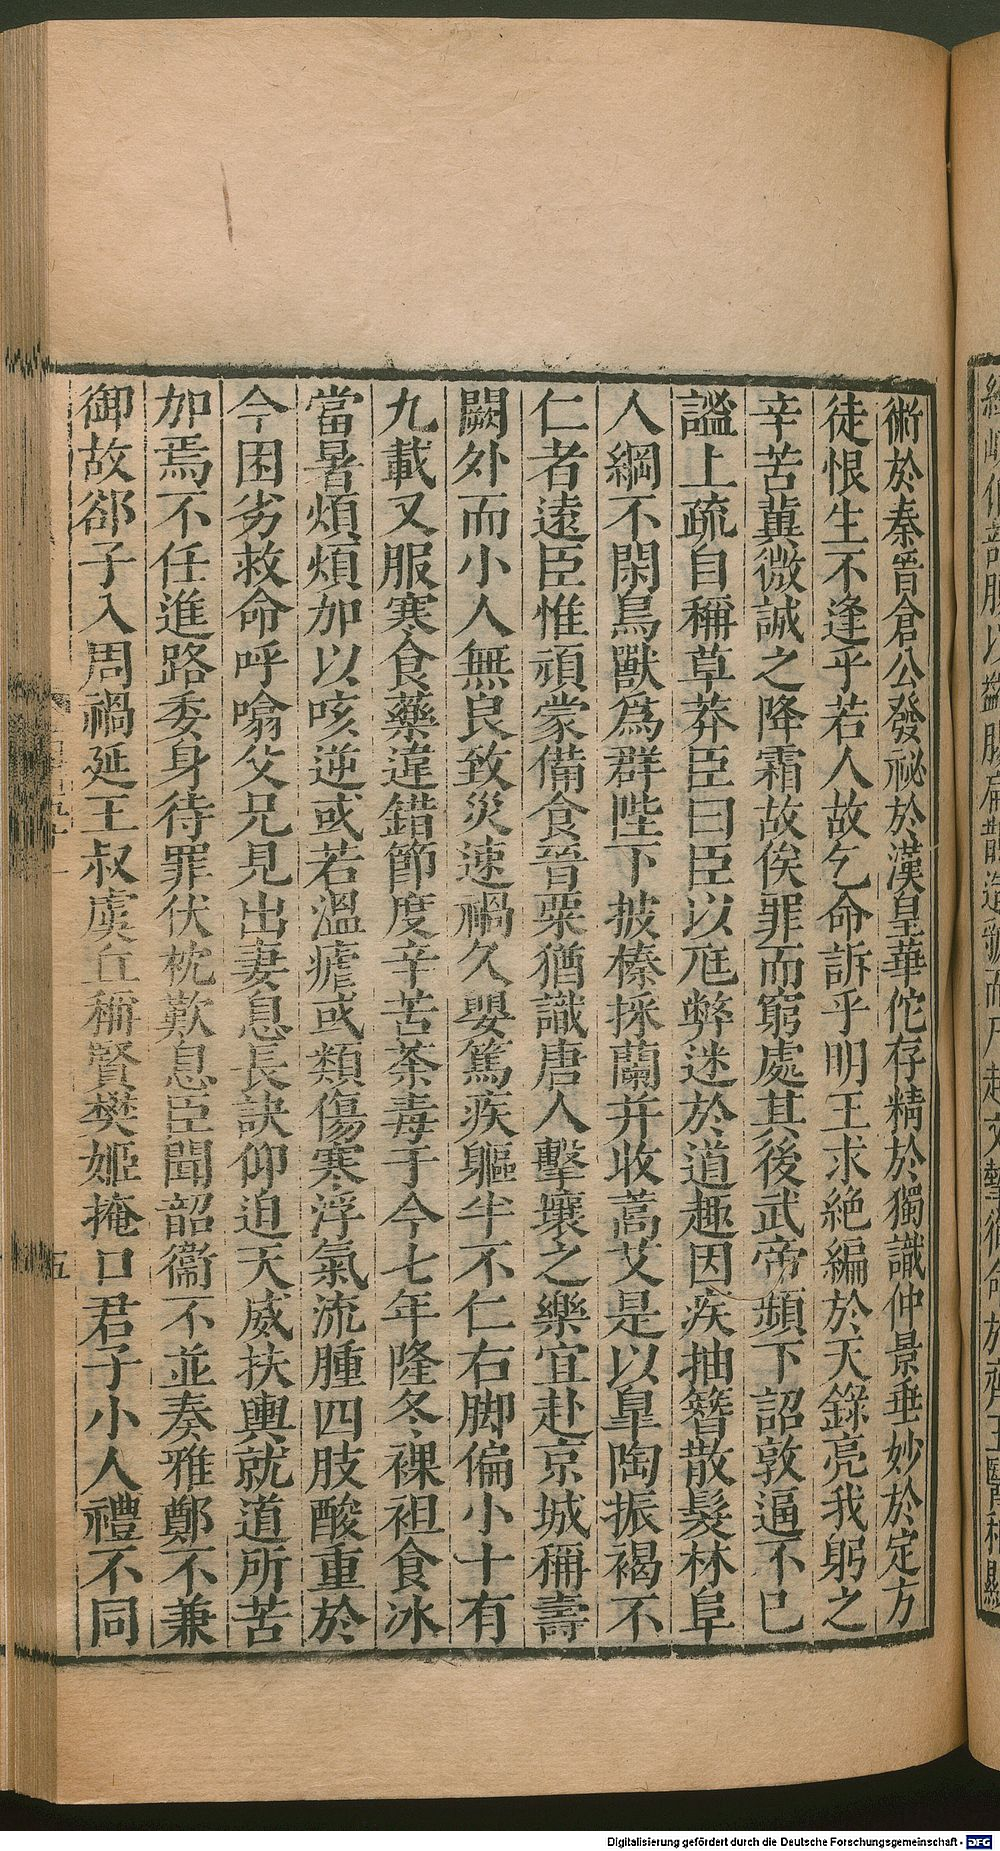 術於秦晉倉公發祕於漢皇華佗存精於獨識仲景垂妙於定方
徒恨生不逢乎若人故乞命訴乎明王求絶編於天錄亮我躬之
辛苦冀微誠之降霜故俟罪而窮處其後武帝頻下詔敦逼不已
謐上疏自稱草莽臣曰臣以尫弊迷於道趣因疾抽簪散髮林阜
人綱不閑鳥獸爲群陛下披榛採蘭并收蒿艾是以臯陶振褐不
仁者遠臣惟頑蒙備食晉粟猶識唐人擊壤之樂宜赴京城稱壽
闕外而小人無良致災速禍久嬰篤疾軀半不仁右脚偏小十有
九載又服寒食藥違錯節度辛苦荼毒于今七年隆冬裸袒食冰
當暑煩煩加以咳逆或若溫瘧或類傷寒浮氣流腫四肢酸重於
今困劣救命呼噏父兄見出妻息長訣仰迫天威扶輿就道所苦
加焉不任進路委身待罪伏枕歎息臣聞韶衞不並奏雅鄭不兼
御故郤子入周禍延王叔虞丘稱賢樊姬掩口君子小人禮不同
五
Digitalisierung gefördert durch die Deutsche Forschungsgemeinschaft - DFG